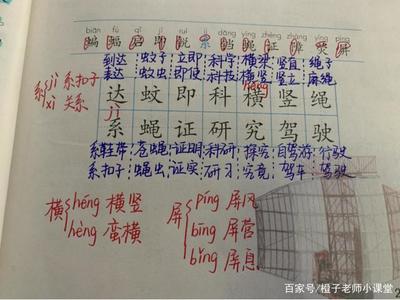 biān fú
蝙 蝠 系 铛 蝇 证 障 荧 屏
到达 蚊子 立即 科学 横梁 竖直 绳子
蚊虫 科技 横竖 竖立 麻绳
系 jì 系扣子
xì 关系
达 蚊 即 科 横 竖 绳
jì
系 蝇 证 研 究 驾 驶
系鞋带 苍蝇 证明 科研 探究 自驾游 行驶
系扣子 蝇虫 证实 研习 究竟 驾车
横 héng 横竖
hèng 蛮横
屏 píng 屏风
bīng 屏营
bǐng 屏息
百家号/橙子老师小课堂